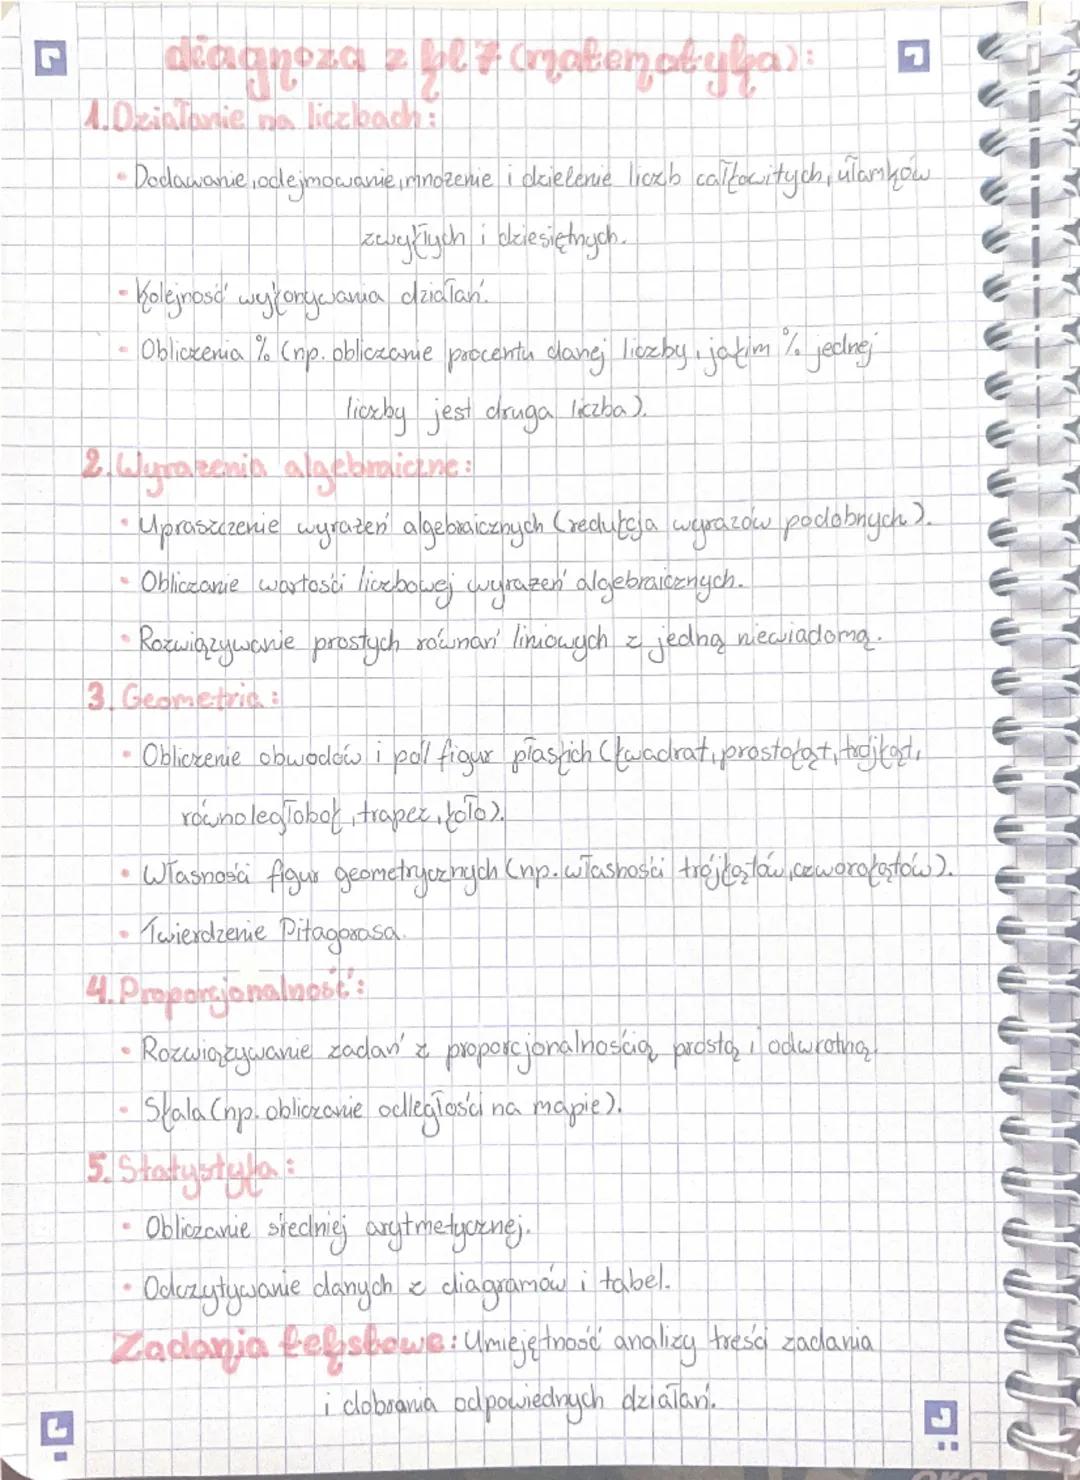 diagnoza z kl 7 (matematyka):
1. Działanie na liczbach:
• Dodawanie, odejmowanie, mnożenie i dzielenie liczb całkowitych, ułamków
zwykłych i dziesiętnych.
• Kolejność wykonywania działań.
• Obliczenia % (np. obliczanie procentu danej liczby, jakim % jednej
liczby jest druga liczba).
2. Wyrażenia algebraiczne:
• Upraszczenie wyrażeń algebraicznych (redukcja wyrazów podobnych).
• Obliczanie wartości liczbowej wyrażeń algebraicznych.
• Rozwiązywanie prostych równań liniowych z jedną niewiadomą.
3. Geometria:
• Obliczenie obwodów i pól figur płaskich (kwadrat, prostokąt, trójkąt,
równoległobok, trapez, koło).
• Własności figur geometrycznych (np. własności trójkątów, czworokątów).
• Twierdzenie Pitagorasa.
4. Proporcjonalność:
• Rozwiązywanie zadań z proporcjonalnością prostą i odwrotną.
• Skala (np. obliczanie odległości na mapie).
5. Statystyka:
• Obliczanie średniej arytmetycznej.
• Odczytywanie danych z diagramów i tabel.
Zadania tekstowe: Umiejętność analizy treści zadania
i dobrania odpowiednych działań.